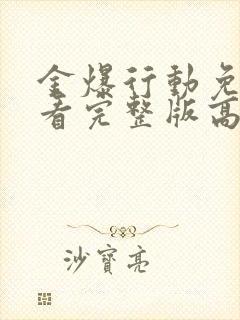 金爆行動免
看完整版高
沙寶亮